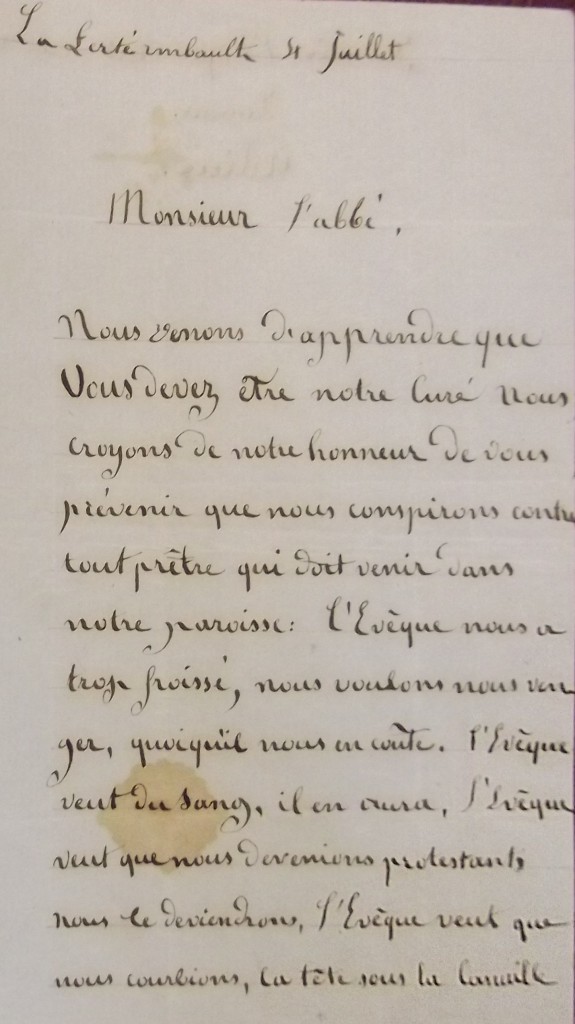 La Ferté imbault 4 Juillet
Monsieur l'abbé,
Nous venons d'apprendre que
Vous devez être notre Curé Nous
croyons de notre honneur de vous
prévenir que nous conspirons contre
tout prêtre qui doit venir dans
notre paroisse: l'Evêque nous a
trop froissé, nous voulons nous ven
ger, quoiqu'il nous en coûte. l'Evêque
veut du sang, il en aura, l'Evêque
veut que nous devenions protestants
nous le deviendrons, l'Evêque veut que
nous courbions, la tête sous la canaille